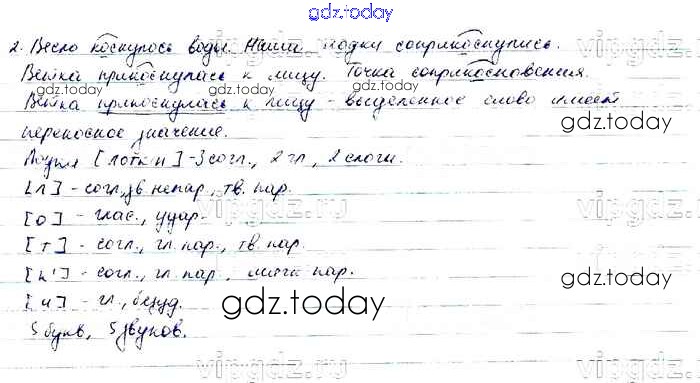 gdz.today
2. Весло коснулось воды. Наши лодки соприкоснулись.
Ветка прикоснулась к лицу. Точка соприкосновения.
Ветка прикоснулась к лицу - выделенное слово имеет
переносное значение.
Лодки [лотк'и] - 3 согл., 2 гл., 2 слога.
[л] - согл., зв. непар., тв. пар.
[о] - глас., удар.
[т] - согл., гл. пар., тв. пар.
[к'] - согл., гл. пар., мягк. пар.
[и] - гл., безуд.
5 букв, 5 звуков.
vipgdz.ru
gdz.today
gdz.today
gdz.today
gdz.today
vipgdz.ru
vipgdz.ru
gdz.today
gdz.today
vipgdz.ru
vipgdz.ru